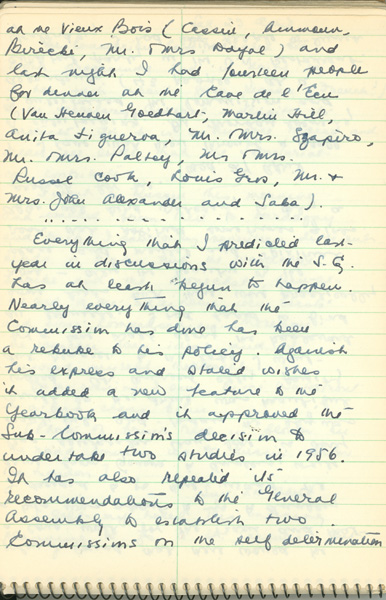 at the Vieux Bois (Cassin, Ammoun,
Berecki, Mr. Mrs Dayal) and
last night I had fourteen people
for dinner at the Cave de l'Ecu
(Van Heuven Goedhart, Martin Hill,
Anita Figueroa, Mr. Mrs. Szapiro,
Mr. Mrs. Palthey, Mr Mrs.
Russel Cook, Louis Gros, Mr. &
Mrs. John Alexander and Saba).
Everything that I predicted last
year in discussions with the S.G.
has at least begun to happen.
Nearly everything that the
Commission has done has been
a rebuke to his policy. Against
his express and stated wishes
it added a new feature to the
Yearbook and it approved the
Sub-Commission's decision to
undertake two studies in 1956.
It has also repeated its
recommendations to the General
Assembly to establish two
Commissions on the self determination